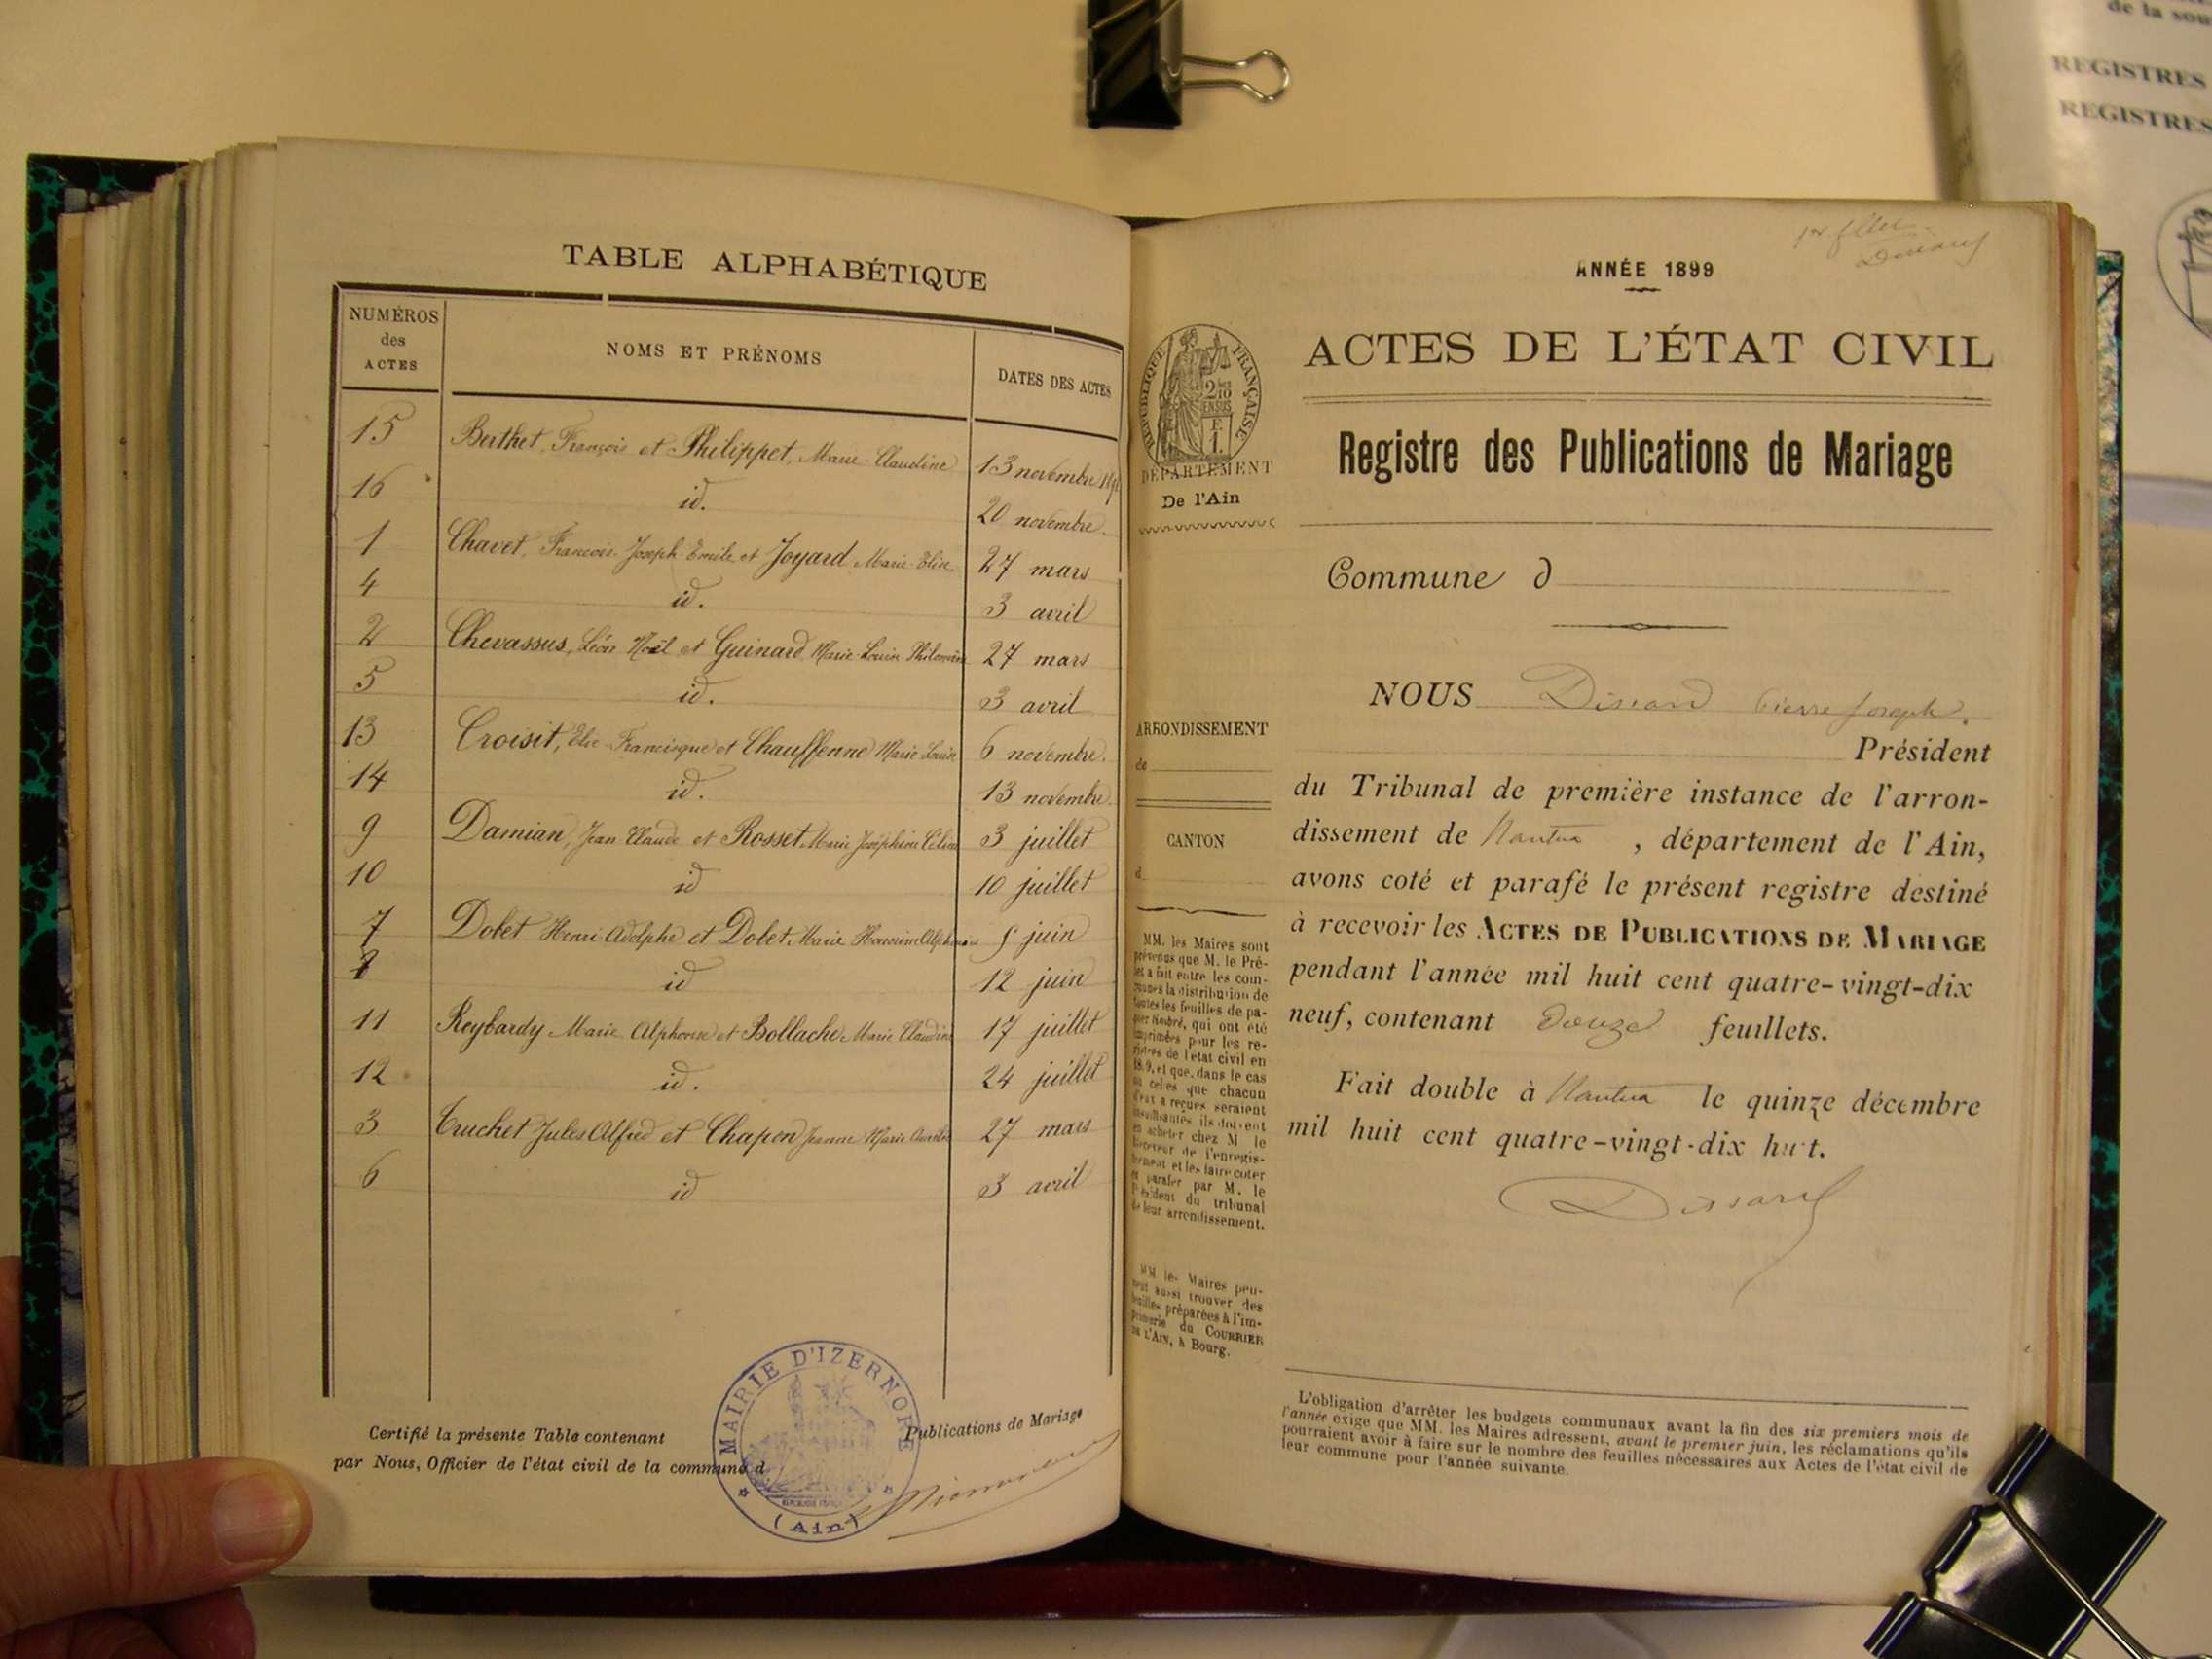 TABLE ALPHABÉTIQUE
NUMÉROS des ACTES
NOMS ET PRÉNOMS
DATES DES ACTES
15 Berthet, François et Philippet, Marie Claudine 13 novembre
16 id. 20 novembre.
1 Chavet, François Joseph Emile et Joyard Marie Elise 27 mars
4 id. 3 avril
2 Chevassus, Léon Noël et Guinard, Marie Louise Philomène 27 mars
5 id. 3 avril
13 Croisit, Elie Francisque et Chauffenne Marie Louise 6 novembre.
14 id. 13 novembre.
9 Damian, Jean Claude et Rosset Marie Joséphine 3 juillet
10 id 10 juillet
7 Dolet Henri Adolphe et Dolet Marie juin
8 id 12 juin
11 Reybardy Marie Alphonse et Bollache Marie Claudine 17 juillet
12 id. 24 juillet
3 Truchet Jules Alfred et Chapon Jeanne Marie 27 mars
6 id 3 avril
Certifié la présente Table contenant Publications de Mariage
par Nous, Officier de l'état civil de la commune d
MAIRIE D'IZERNORE
(Ain)
ANNÉE 1899
RÉPUBLIQUE FRANÇAISE
2/10
EN SUS
F.
1.
ACTES DE L'ÉTAT CIVIL
Registre des Publications de Mariage
DÉPARTEMENT
De l'Ain
Commune d
NOUS Dissard Pierre Joseph.
ARRONDISSEMENT
de
Président
du Tribunal de première instance de l'arron-
dissement de Nantua, département de l'Ain,
CANTON
d
avons coté et parafé le présent registre destiné
à recevoir les ACTES DE PUBLICATIONS DE MARIAGE
pendant l'année mil huit cent quatre-vingt-dix
neuf, contenant douze feuillets.
Fait double à Nantua le quinze décembre
mil huit cent quatre-vingt-dix huit.
Dissard
MM. les Maires sont
prévenus que M. le Pré-
fet a fait entre les com-
munes la distribution de
toutes les feuilles de pa-
pier timbré, qui ont été
imprimées pour les re-
gistres de l'état civil en
1899, et que, dans le cas
où celles que chacun
d'eux a reçues seraient
insuffisantes ils doivent
en acheter chez M le
Receveur de l'enregis-
trement et les faire coter
et parafer par M. le
Président du tribunal
de leur arrondissement.
MM les Maires peu-
vent aussi trouver des
feuilles préparées à l'im-
primerie du COURRIER
DE L'AIN, à Bourg.
L'obligation d'arrêter les budgets communaux avant la fin des six premiers mois de
l'année exige que MM. les Maires adressent, avant le premier juin, les réclamations qu'ils
pourraient avoir à faire sur le nombre des feuilles nécessaires aux Actes de l'état civil de
leur commune pour l'année suivante.
de la sou
REGISTRES
REGISTRES